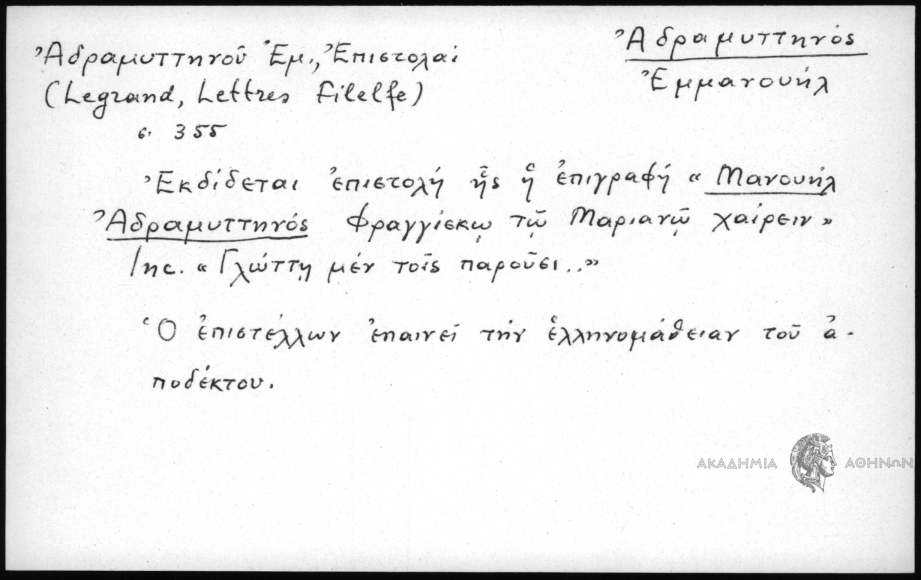 Ἀδραμυττηνοῦ Ἐμ., Ἐπιστολαί
(Legrand, Lettres Filelfe)
σ. 355
Ἀδραμυττηνός
Ἐμμανουήλ
Ἐκδίδεται ἐπιστολή ἧς ἡ ἐπιγραφή «Μανουήλ
Ἀδραμυττηνός Φραγγίσκῳ τῷ Μαριανῷ χαίρειν»
Inc. «Γλώττῃ μέν τοῖς παροῦσι..»
Ὁ ἐπιστέλλων ἐπαινεῖ τήν ἑλληνομάθειαν τοῦ ἀ-
ποδέκτου.
ΑΚΑΔΗΜΙΑ ΑΘΗΝΩΝ